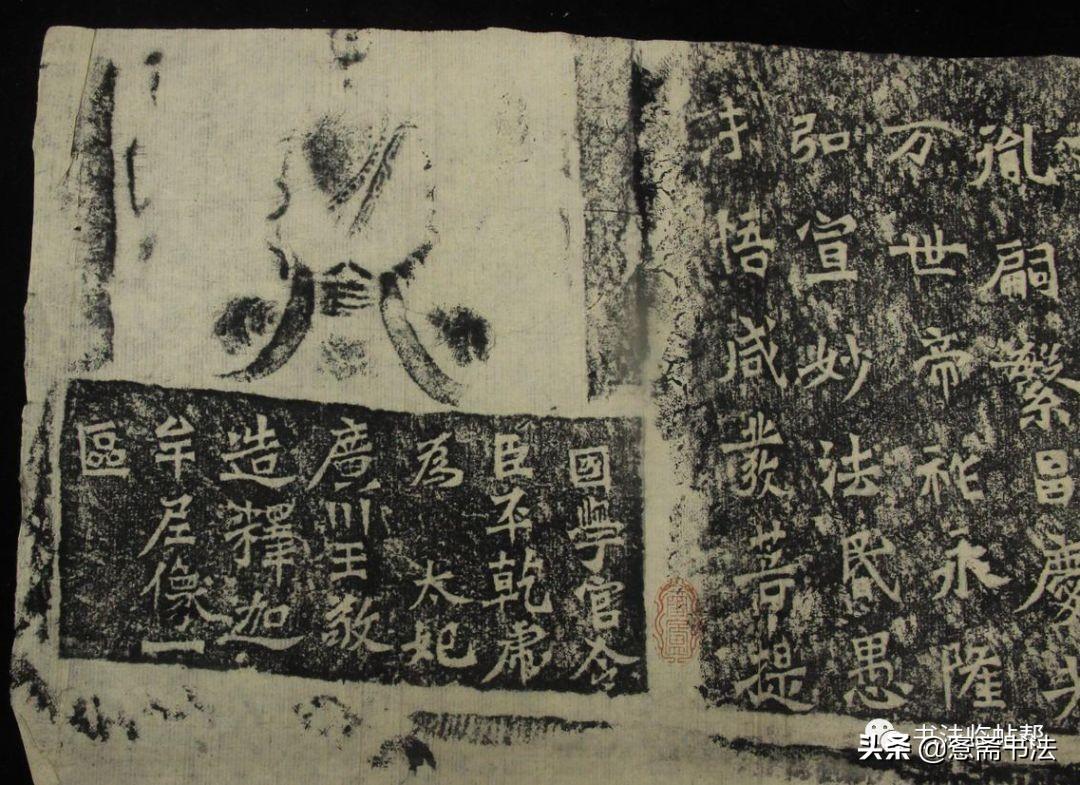 胤嗣繁昌慶光
万世帝祚永隆
弘宣妙法民愚
才悟咸發菩提
國學官令
臣平乾虎
為太妃
廣川王敬
造釋加
牟尼像一
區
书法临帖帮
头条 @斋书法